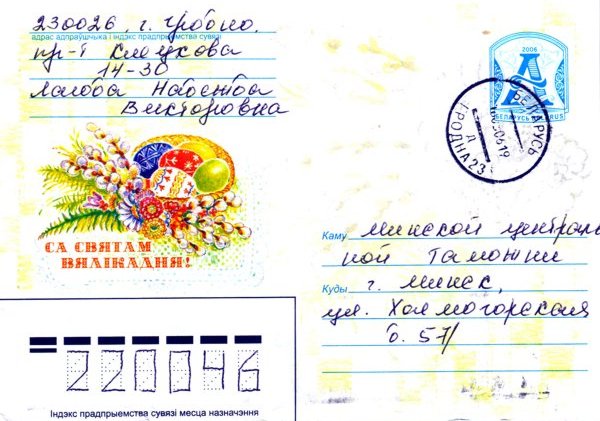 230026, г. Гродно.
адрас адпраўшчыка і індэкс прадпрыемства сувязі
пр-т Клецкова
14-30
Виктор​овна
СА СВЯТАМ
ВЯЛІКАДНЯ!
2006
A
БЕЛАРУСЬ BELARUS
БЕЛАРУСЬ
ГРОДНА 23
Д
Каму Минской централь
ной таможни
Куды г. Минск,
ул. Холмогорская
д. 57/
220046
Індэкс прадпрыемства сувязі месца назначэння